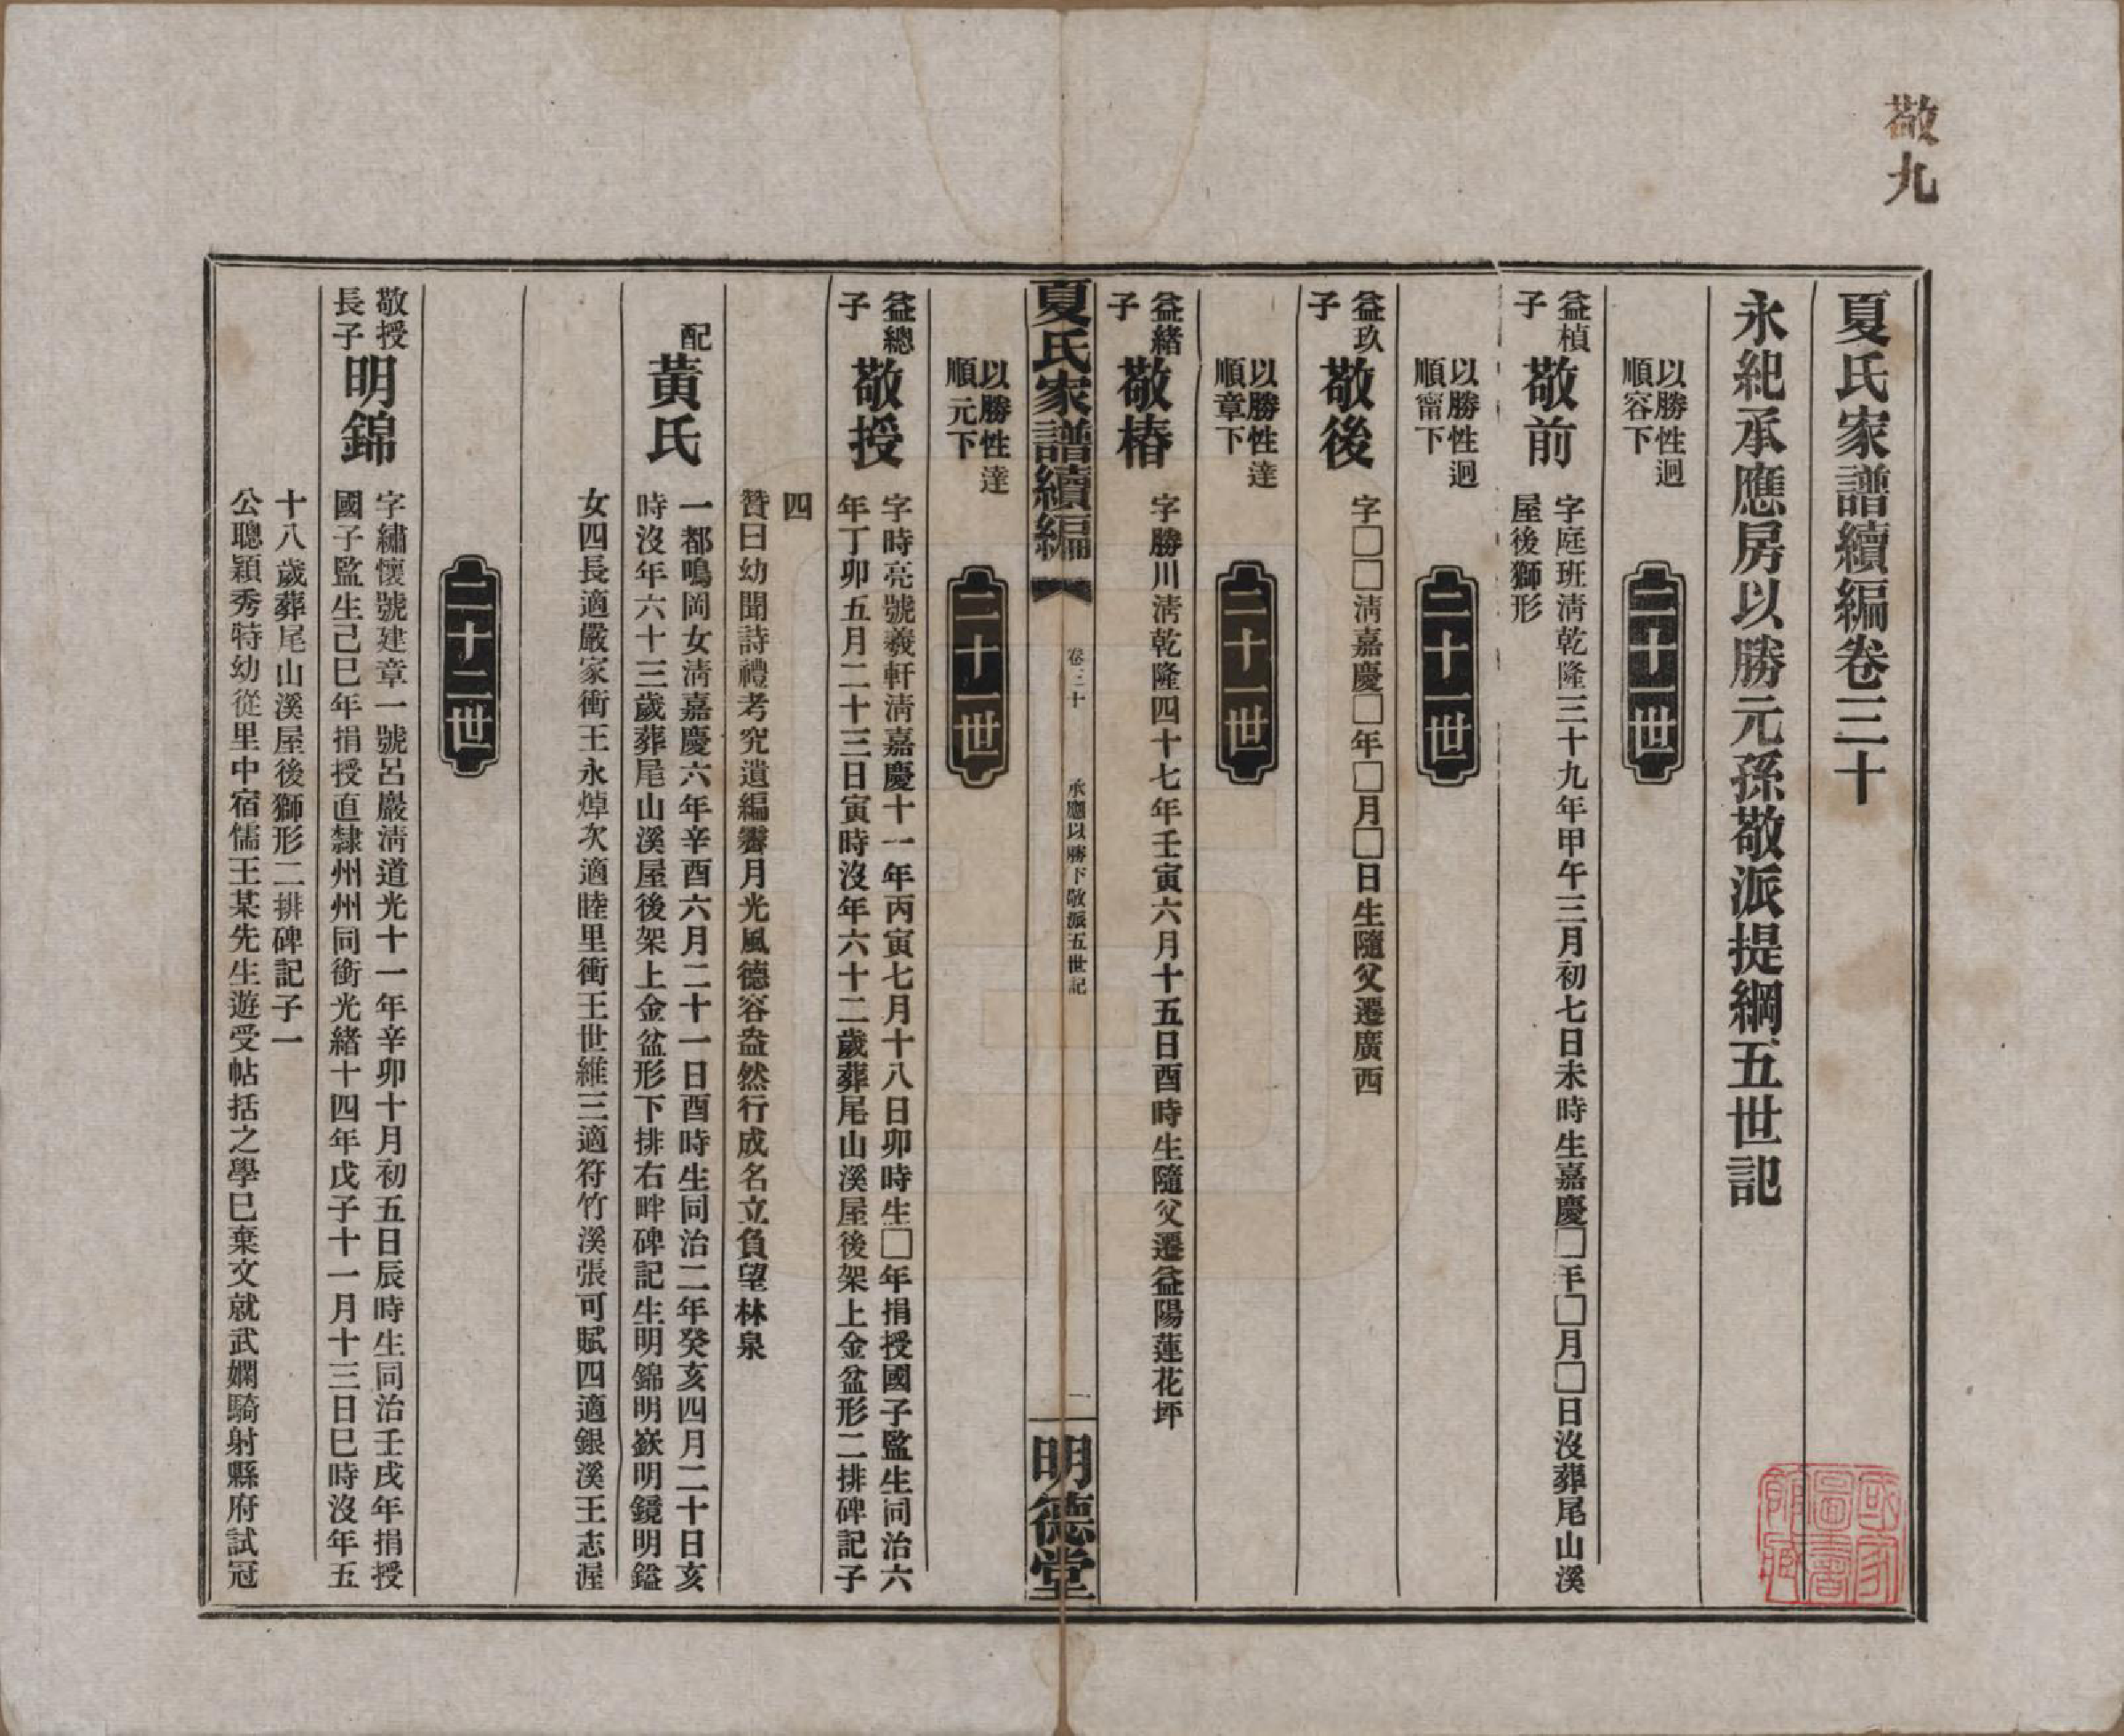 敬九
夏氏家譜續編卷三十
永紀承應房以勝元孫敬派提綱五世記
以勝性迥
順容下
二十一世
益楨
子
敬前
字庭班清乾隆三十九年甲午三月初七日未時生嘉慶□年□月□日沒葬尾山溪
屋後獅形
以勝性迥
順甯下
二十一世
益玖
子
敬後
字□□清嘉慶□年□月□日生隨父遷廣西
以勝性達
順章下
二十一世
益緒
子
敬椿
字勝川清乾隆四十七年壬寅六月十五日酉時生隨父遷益陽蓮花坪
夏氏家譜續編
卷三十
承應以勝下敬派五世記
一
明德堂
以勝性達
順元下
二十一世
益總
子
敬授
字時亮號義軒清嘉慶十一年丙寅七月十八日卯時生□年捐授國子監生同治六
年丁卯五月二十三日寅時沒年六十二歲葬尾山溪屋後架上金盆形二排碑記子
四
贊曰幼聞詩禮考究遺編霽月光風德容盎然行成名立負望林泉
配
黃氏
一都鳴岡女清嘉慶六年辛酉六月二十一日酉時生同治二年癸亥四月二十日亥
時沒年六十三歲葬尾山溪屋後架上金盆形下排右畔碑記生明錦明嶔明鏡明鎰
女四長適嚴家衝王永焯次適睦里衝王世維三適符竹溪張可賦四適銀溪王志渥
二十二世
敬授
長子
明錦
字繡懷號建章一號呂巖清道光十一年辛卯十月初五日辰時生同治壬戌年捐授
國子監生己巳年捐授直隸州州同銜光緒十四年戊子十一月十三日巳時沒年五
十八歲葬尾山溪屋後獅形二排碑記子一
公聰穎秀特幼從里中宿儒王某先生遊受帖括之學已棄文就武嫻騎射縣府試冠
國家
圖書
館藏